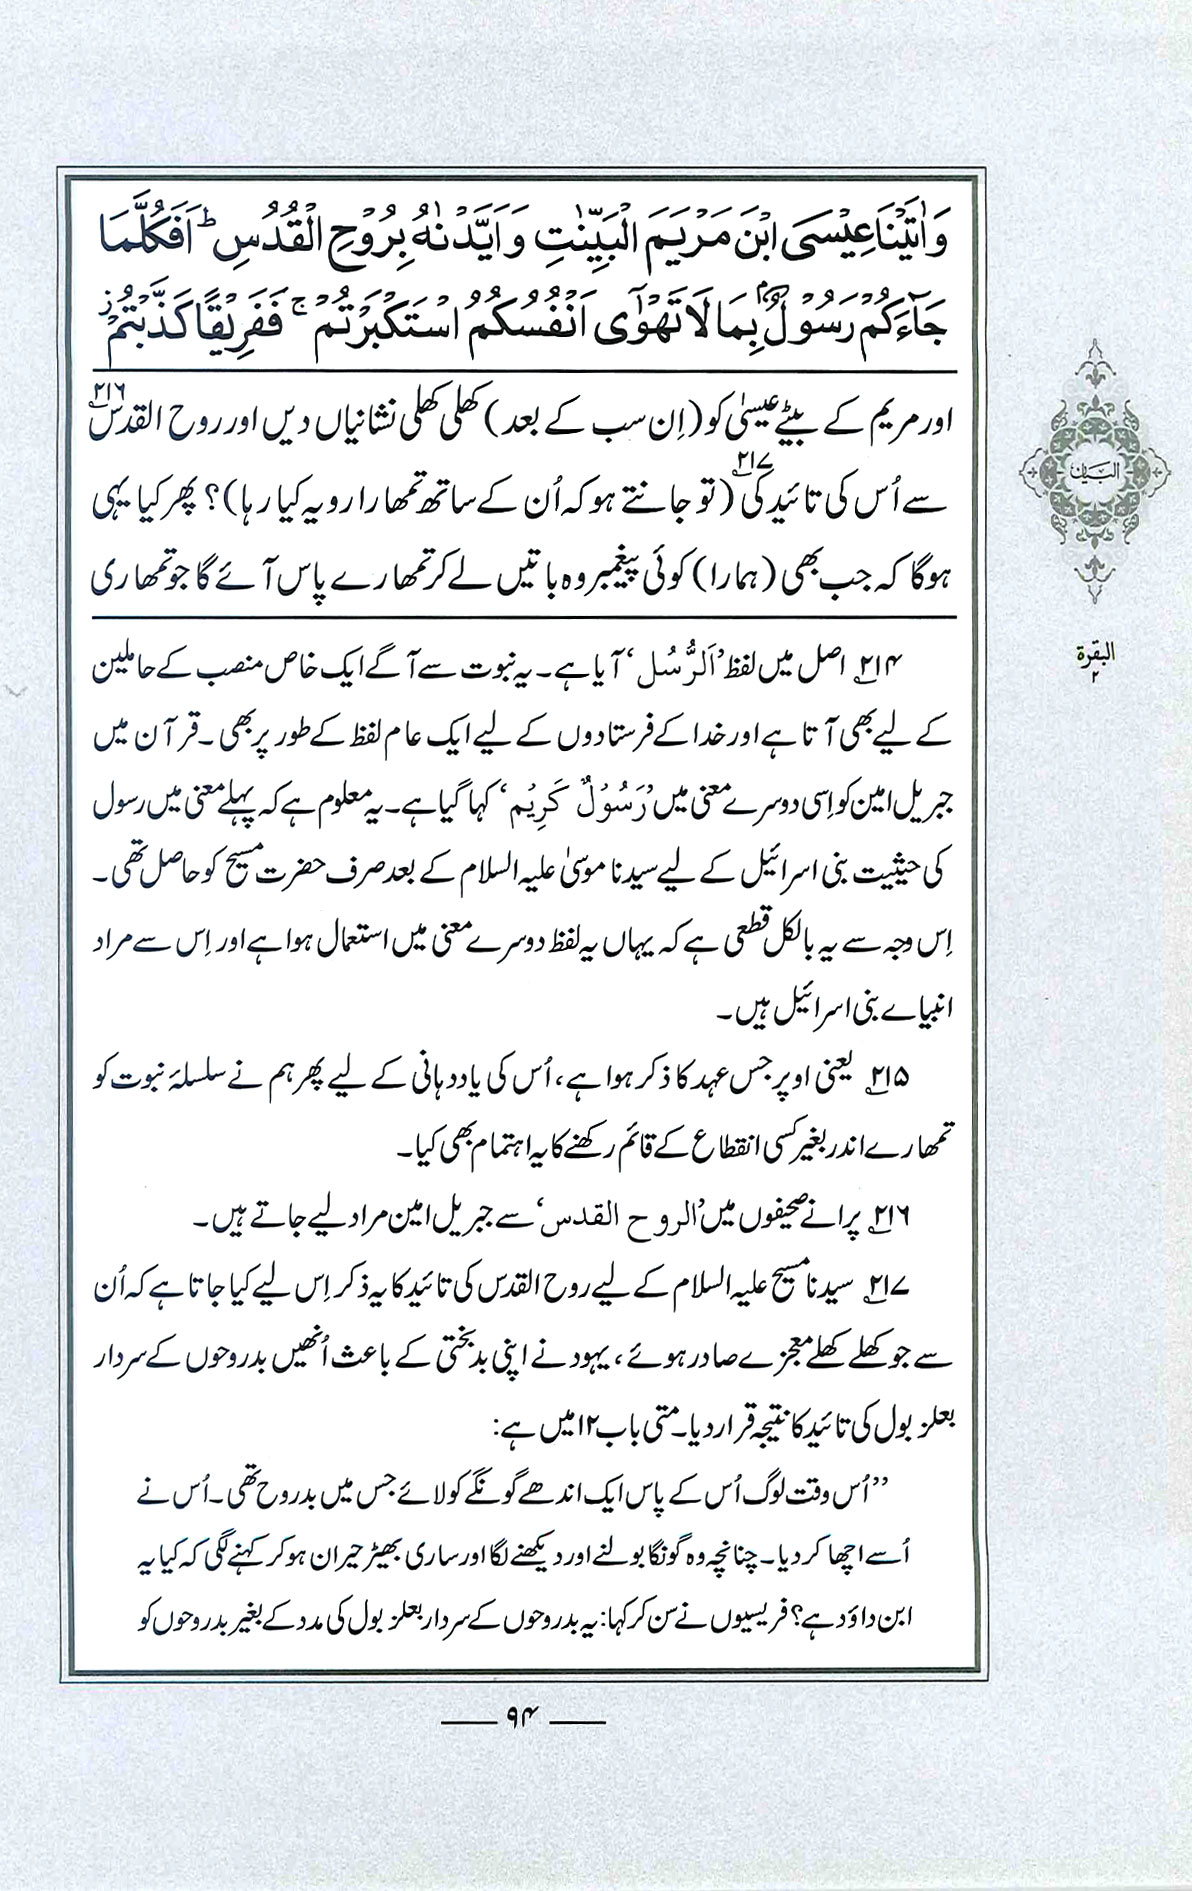 وَاٰتَيْنَا عِيْسَى ابْنَ مَرْيَمَ الْبَيِّنٰتِ وَاَيَّدْنٰهُ بِرُوْحِ الْقُدُسِ ؕ اَفَكُلَّمَا
جَآءَكُمْ رَسُوْلٌۢ بِمَا لَا تَهْوٰٓى اَنْفُسُكُمُ اسْتَكْبَرْتُمْ ۚ فَفَرِيْقًا كَذَّبْتُمْ ز
اور مریم کے بیٹے عیسیٰ کو (اِن سب کے بعد) کھلی کھلی نشانیاں دیں اور روح القدس۲۱۶
سے اُس کی تائید کی۲۱۷ (تو جانتے ہو کہ اُن کے ساتھ تمھارا رویہ کیا رہا)؟ پھر کیا یہی
ہوگا کہ جب بھی (ہمارا) کوئی پیغمبر وہ باتیں لے کر تمھارے پاس آئے گا جو تمھاری
۲۱۴ اصل میں لفظ ’اَلرُّسُل‘ آیا ہے۔ یہ نبوت سے آگے ایک خاص منصب کے حاملین
کے لیے بھی آتا ہے اور خدا کے فرستادوں کے لیے ایک عام لفظ کے طور پر بھی۔ قرآن میں
جبریل امین کو اِسی دوسرے معنی میں ’رَسُوْلٌ کَرِیْم‘ کہا گیا ہے۔ یہ معلوم ہے کہ پہلے معنی میں رسول
کی حیثیت بنی اسرائیل کے لیے سیدنا موسیٰ علیہ السلام کے بعد صرف حضرت مسیح کو حاصل تھی۔
اِس وجہ سے یہ بالکل قطعی ہے کہ یہاں یہ لفظ دوسرے معنی میں استعمال ہوا ہے اور اِس سے مراد
انبیاے بنی اسرائیل ہیں۔
۲۱۵ یعنی اوپر جس عہد کا ذکر ہوا ہے، اُس کی یاددہانی کے لیے پھر ہم نے سلسلۂ نبوت کو
تمھارے اندر بغیر کسی انقطاع کے قائم رکھنے کا یہ اہتمام بھی کیا۔
۲۱۶ پرانے صحیفوں میں ’الروح القدس‘ سے جبریل امین مراد لیے جاتے ہیں۔
۲۱۷ سیدنا مسیح علیہ السلام کے لیے روح القدس کی تائید کا یہ ذکر اِس لیے کیا جاتا ہے کہ اُن
سے جو کھلے کھلے معجزے صادر ہوئے، یہود نے اپنی بدبختی کے باعث اُنھیں بدروحوں کے سردار
بعلزبول کی تائید کا نتیجہ قرار دیا۔ متی باب ۱۲ میں ہے:
’’اُس وقت لوگ اُس کے پاس ایک اندھے گونگے کو لائے جس میں بدروح تھی۔ اُس نے
اُسے اچھا کر دیا۔ چنانچہ وہ گونگا بولنے اور دیکھنے لگا اور ساری بھیڑ حیران ہو کر کہنے لگی کہ کیا یہ
ابن داؤد ہے؟ فریسیوں نے سن کر کہا: یہ بدروحوں کے سردار بعلزبول کی مدد کے بغیر بدروحوں کو
۹۴
البیان
البقرة
۲